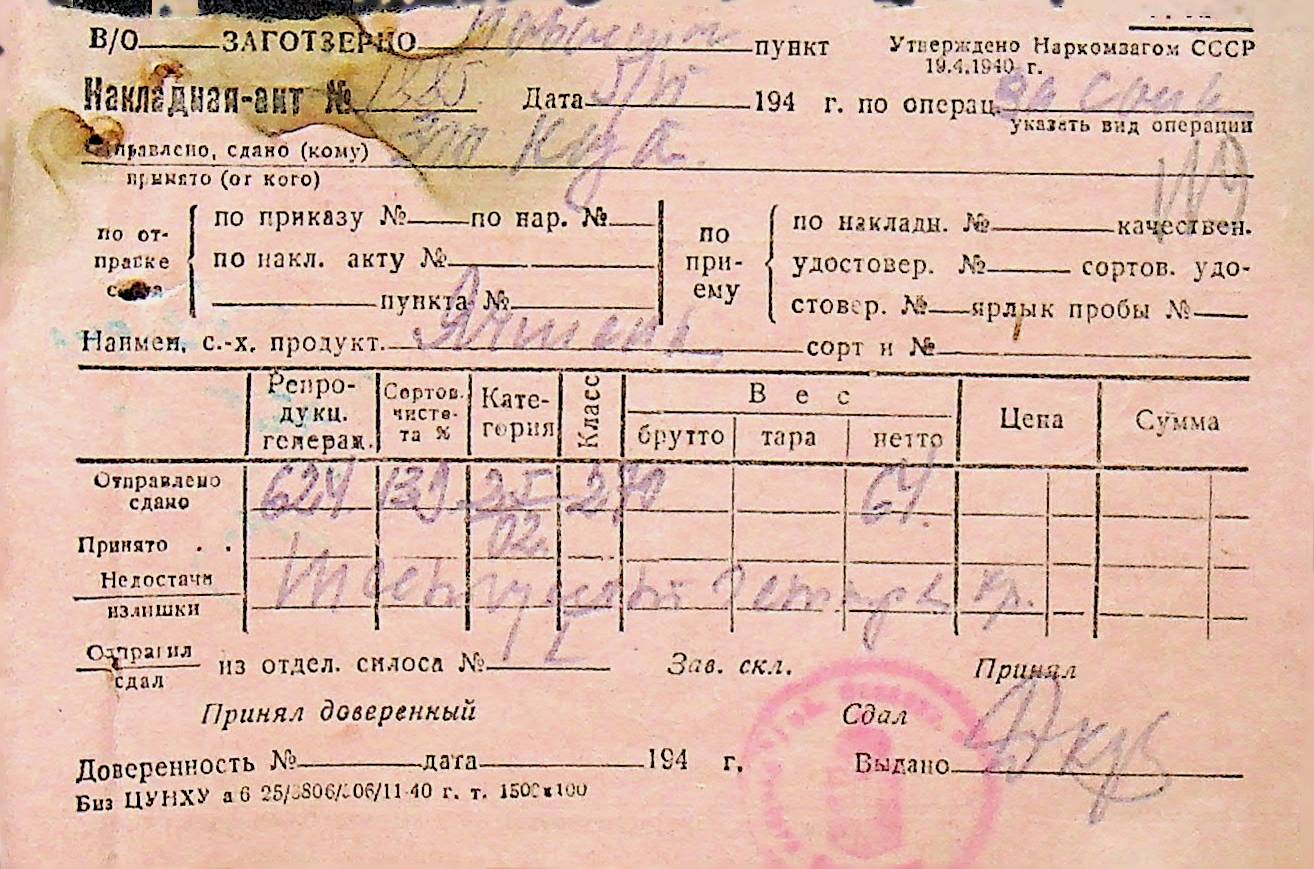 В/О ЗАГОТЗЕРНО пункт
Утверждено Наркомзагом СССР
19.4.1940 г.
Накладная-акт № 1885 Дата 5/VI 194 г. по операц.
указать вид операции
отправлено, сдано (кому)
принято (от кого)
по от-
правке
сдача
по приказу № по нар. №
по накл. акту №
пункта №
по
при-
ему
по накладн. № качествен.
удостовер. № сортов. удо-
стовер. № ярлык пробы №
Наимен. с.-х. продукт. Ячмень сорт и №
Репро-
дукц.
генерац.
Сортов.
чисто-
та %
Кате-
гория
Класс
Вес
брутто тара нетто
Цена
Сумма
Отправлено
сдано
624 139 270 64
Принято . .
02.
Недостачи
излишки
Отправил
сдал
из отдел. силоса № Зав. скл. Принял
Принял доверенный Сдал
Доверенность № дата 194 г. Выдано
Биз ЦУНХУ а6 25/3806/306/11-40 г. т. 1500х100